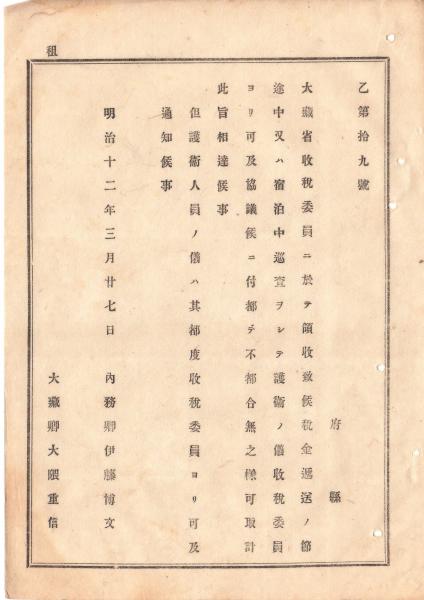 租
乙第拾九號
府縣
大藏省收稅委員ニ於テ領收致候稅金遞送ノ節
途中又ハ宿泊中巡査ヲシテ護衛ノ儀收稅委員
ヨリ可及協議候ニ付都テ不都合無之樣可取計
此旨相達候事
但護衛人員ノ儀ハ其都度收稅委員ヨリ可及
通知候事
明治十二年三月廿七日 內務卿伊藤博文
大藏卿大隈重信